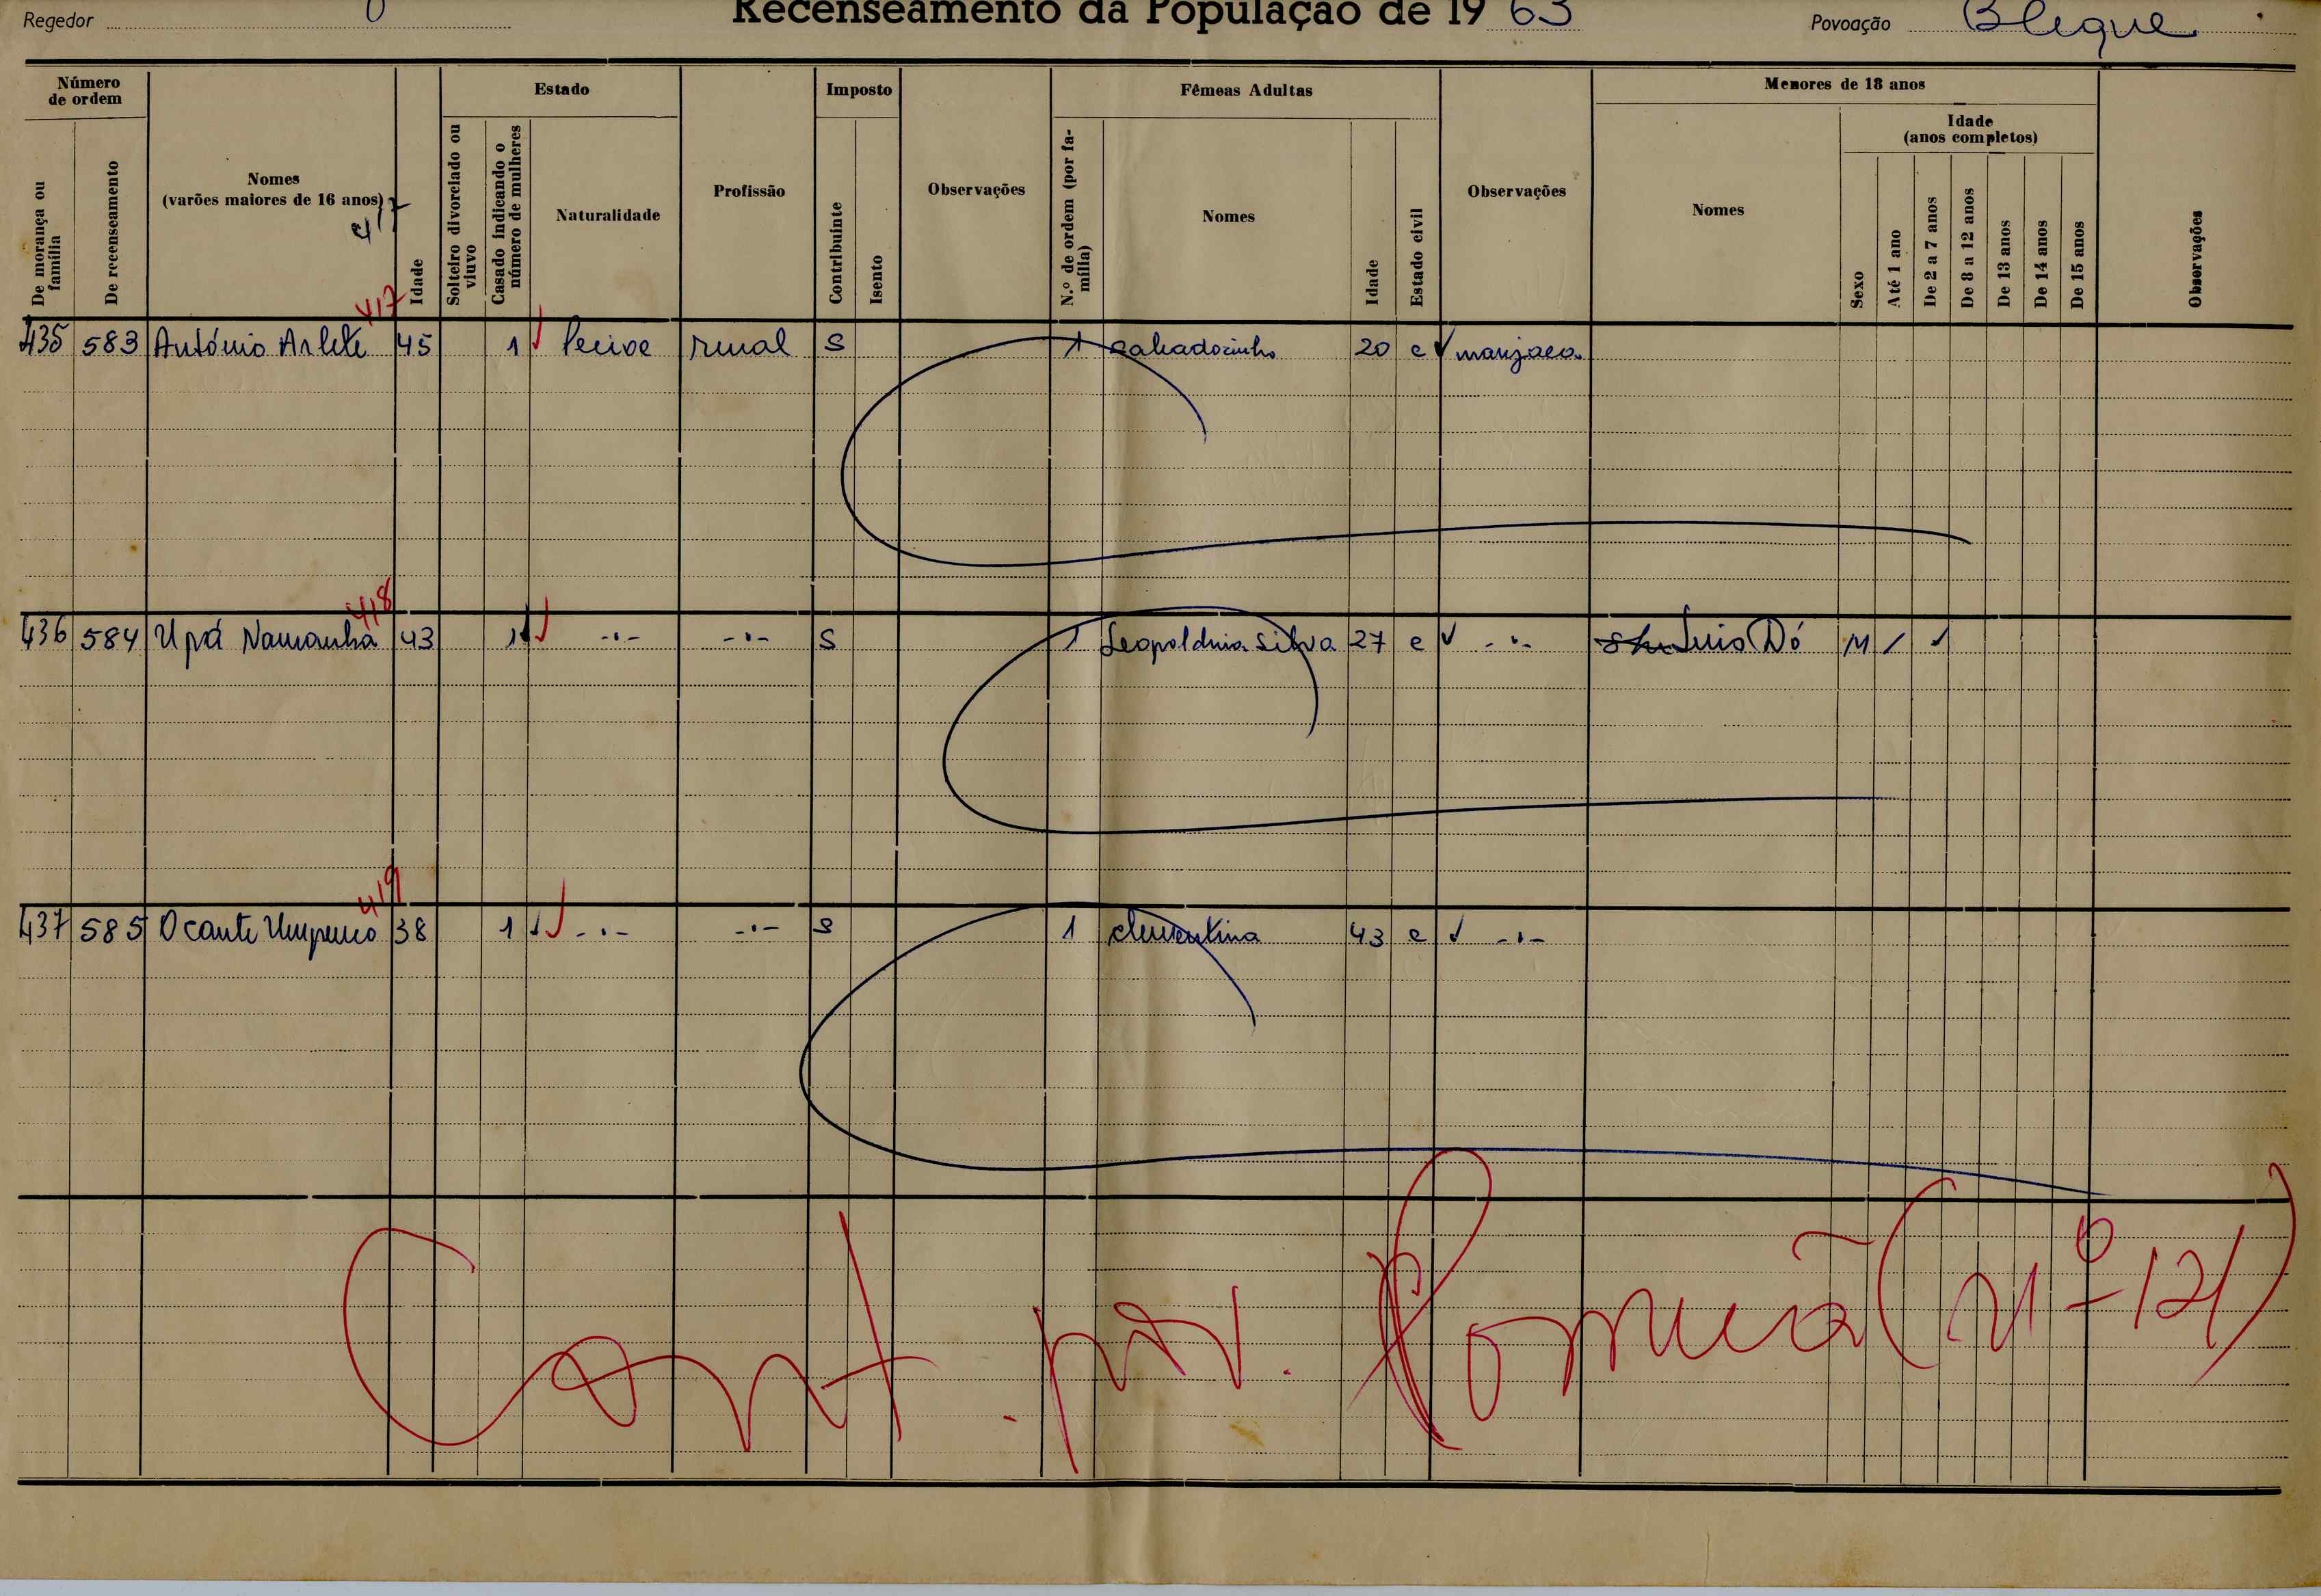 Regedor
Recenseamento da População de 19 63
Povoação Bleque
Número de ordem
De morança ou família
De recenseamento
Nomes
(varões maiores de 16 anos)
417
Idade
Estado
Solteiro divorciado ou viuvo
Casado indicando o número de mulheres
Naturalidade
Profissão
Imposto
Contribuinte
Isento
Observações
Fêmeas Adultas
N.º de ordem (por família)
Nomes
Idade
Estado civil
Observações
Menores de 18 anos
Nomes
Idade
(anos completos)
Sexo
Até 1 ano
De 2 a 7 anos
De 8 a 12 anos
De 13 anos
De 14 anos
De 15 anos
Observações
417
435 583 António Arlete 45 1 Pecixe rural S 1 20 c manjaca
418
436 584 Upá Namanha 43 1 -·- -·- S 1 Leopoldina Silva 27 c -·- Luis Dó M / 1
419
437 585 Ocante 38 1 -·- -·- S 1 clementina 43 c -·-
Cont. pov. (nº-121)